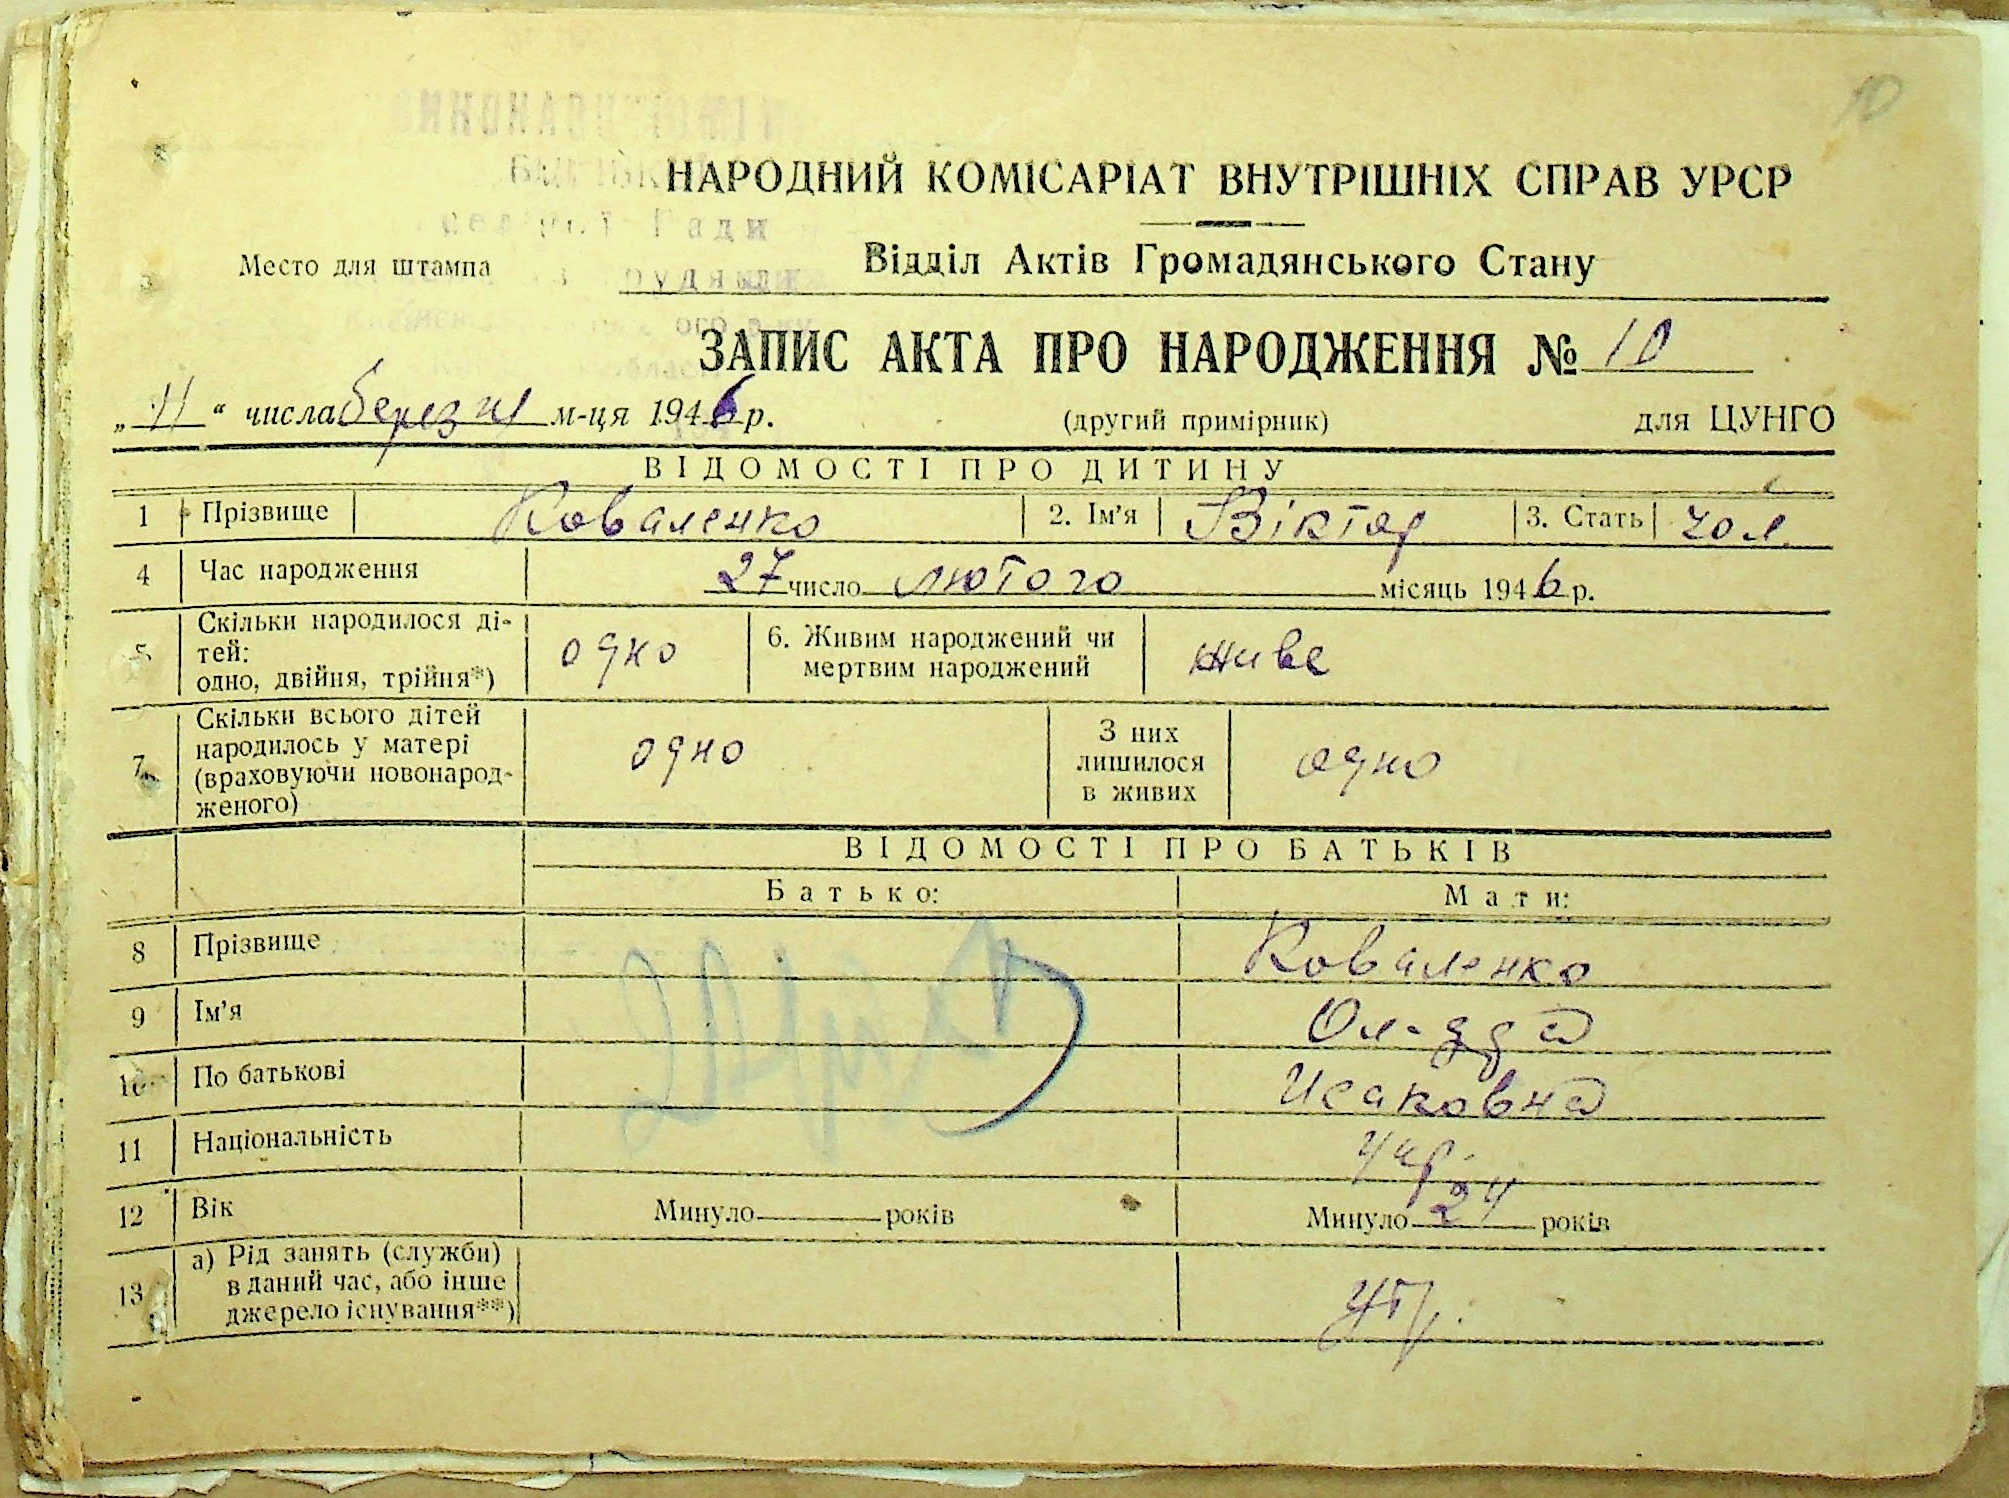 10
НАРОДНИЙ КОМІСАРІАТ ВНУТРІШНІХ СПРАВ УРСР
Место для штампа
Відділ Актів Громадянського Стану
ЗАПИС АКТА ПРО НАРОДЖЕННЯ № 10
„11“ числа березня м-ця 1946 р. (другий примірник) для ЦУНГО
ВІДОМОСТІ ПРО ДИТИНУ
1 Прізвище Коваленко 2. Ім'я Віктор 3. Стать чол.
4 Час народження 27 число лютого місяць 1946 р.
5 Скільки народилося ді-
тей:
одно, двійня, трійня*) одно 6. Живим народжений чи
мертвим народжений живе
7 Скільки всього дітей
народилось у матері
(враховуючи новонарод-
женого) одно З них
лишилося
в живих одно
ВІДОМОСТІ ПРО БАТЬКІВ
Батько: Мати:
8 Прізвище Коваленко
9 Ім'я
10 По батькові Исаковна
11 Національність укр.
12 Вік Минуло років Минуло 24 років
13 а) Рід занять (служби)
в даний час, або інше
джерело існування**)